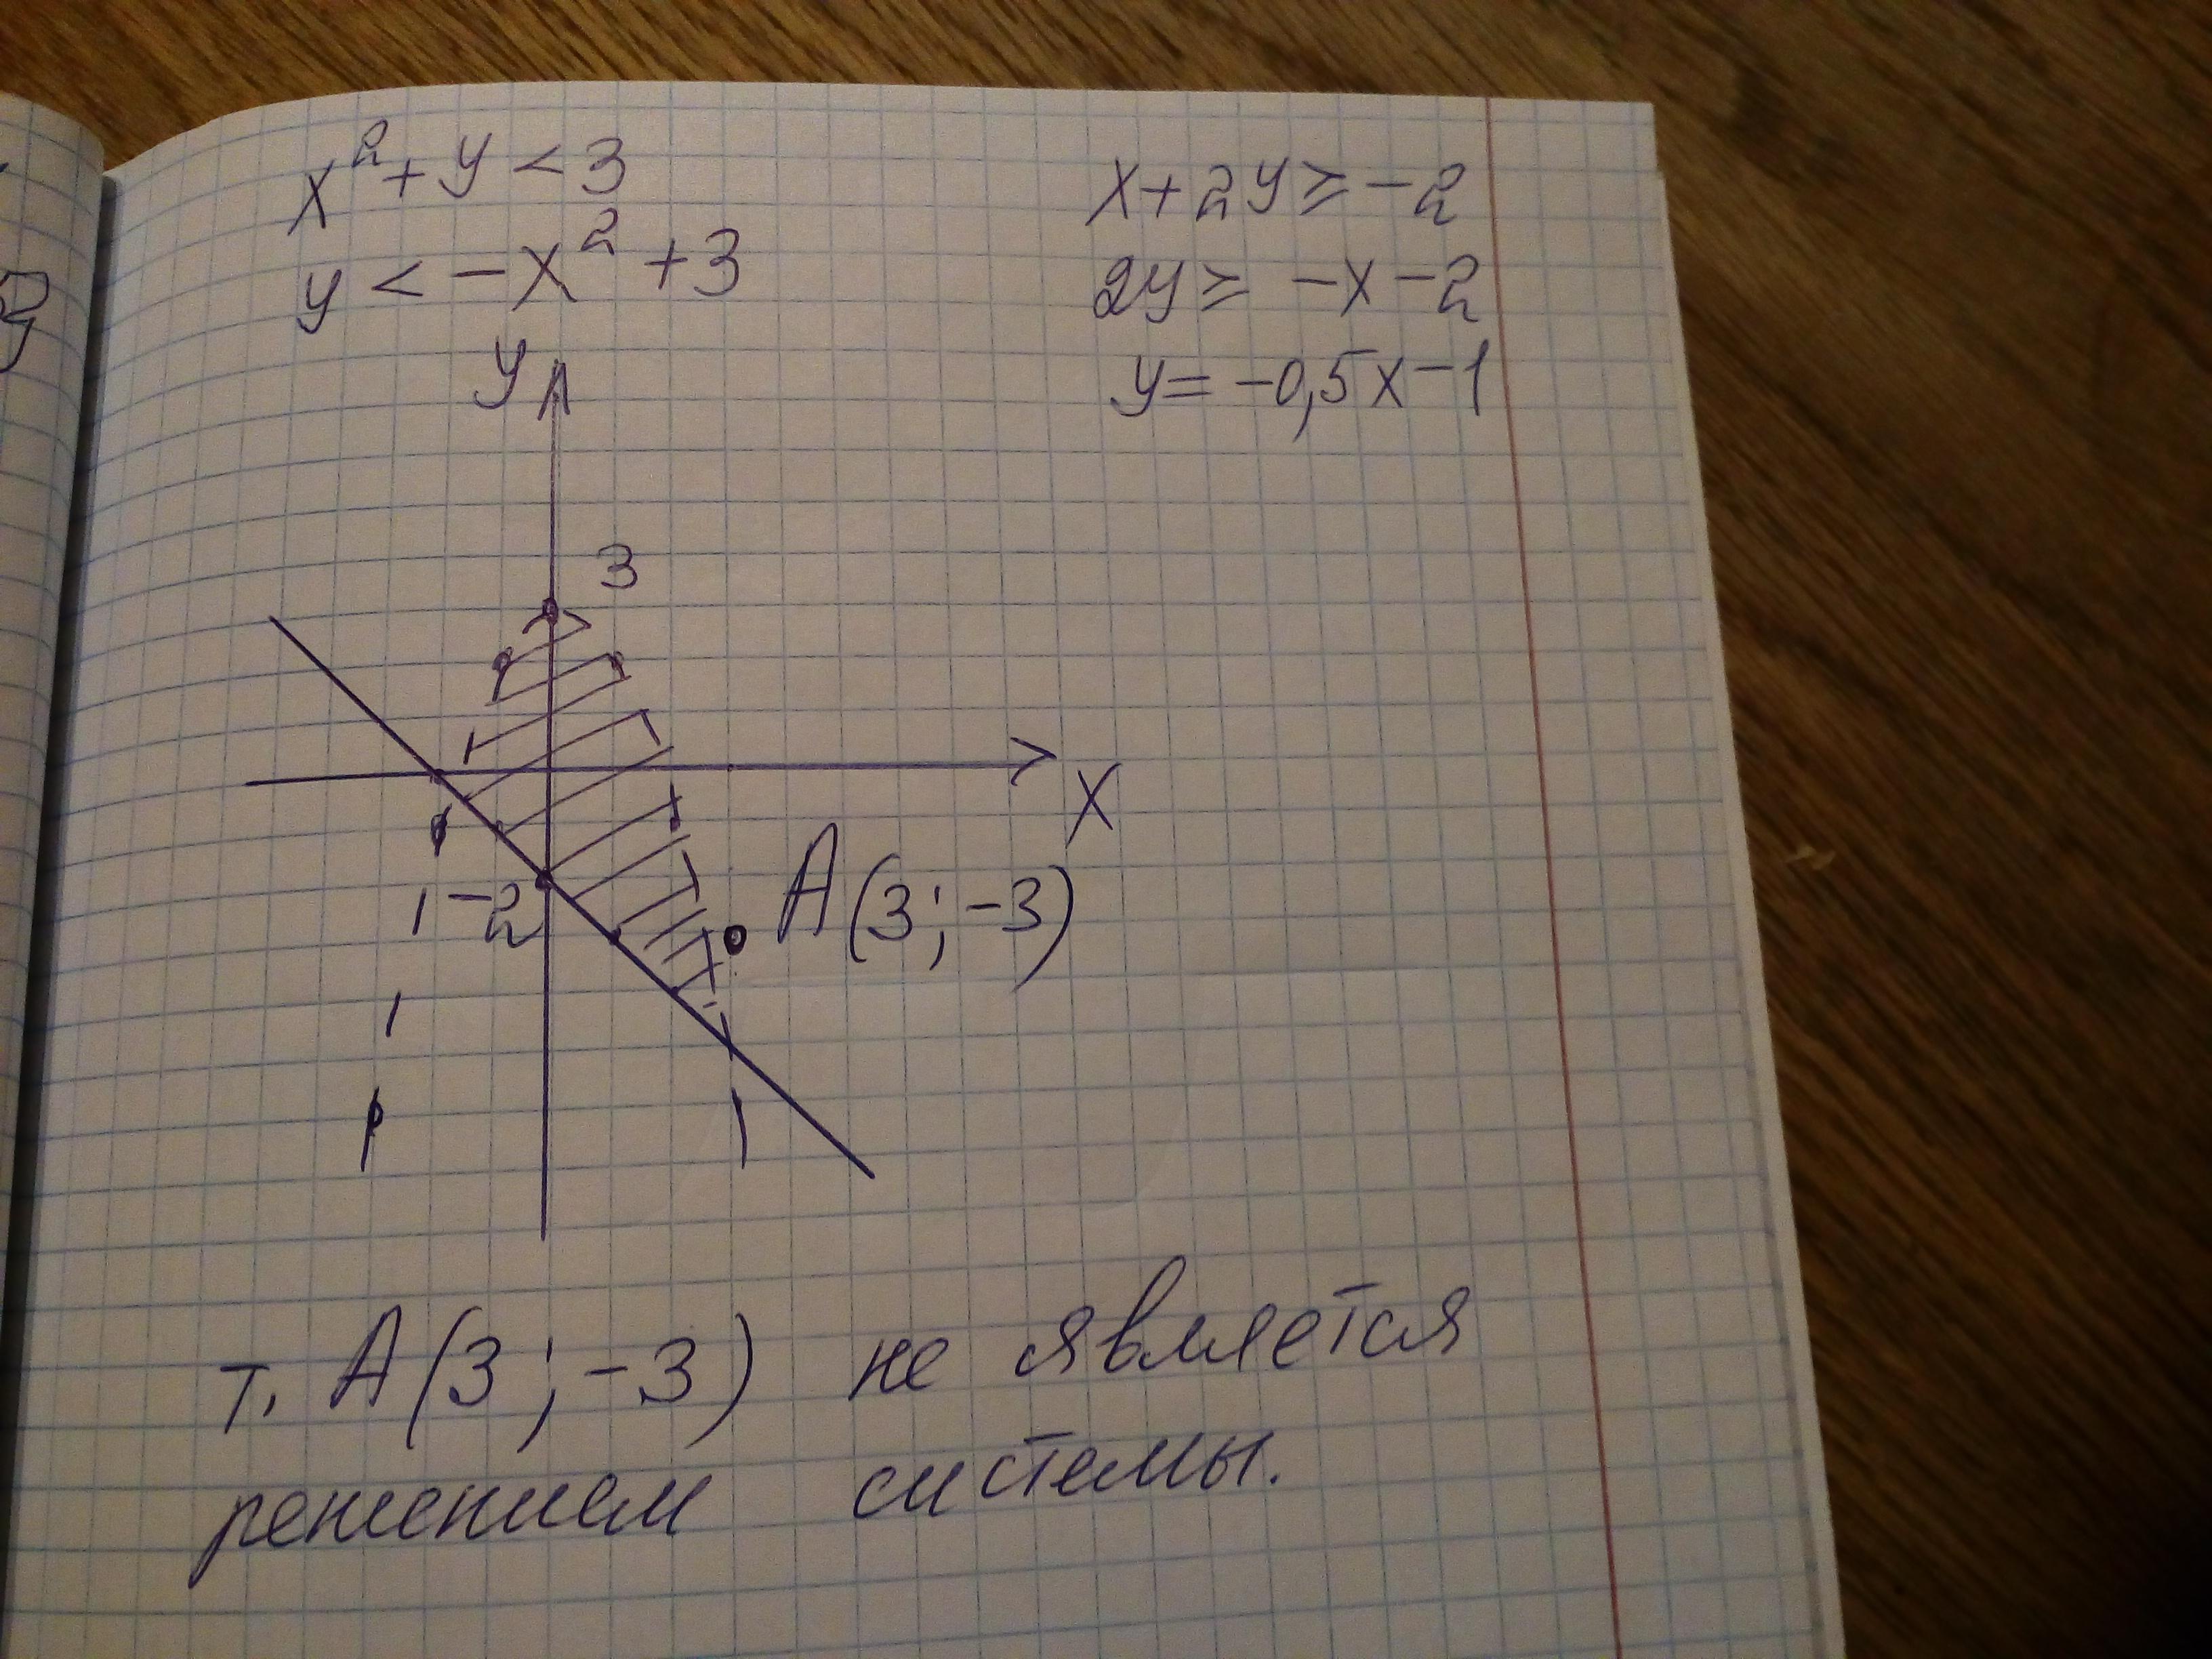 x² + y < 3
y < -x² + 3
x + 2y ≥ -2
2y ≥ -x - 2
y = -0,5x - 1
y
3
x
-2
A(3; -3)
т. A(3; -3) не является
решением системы.